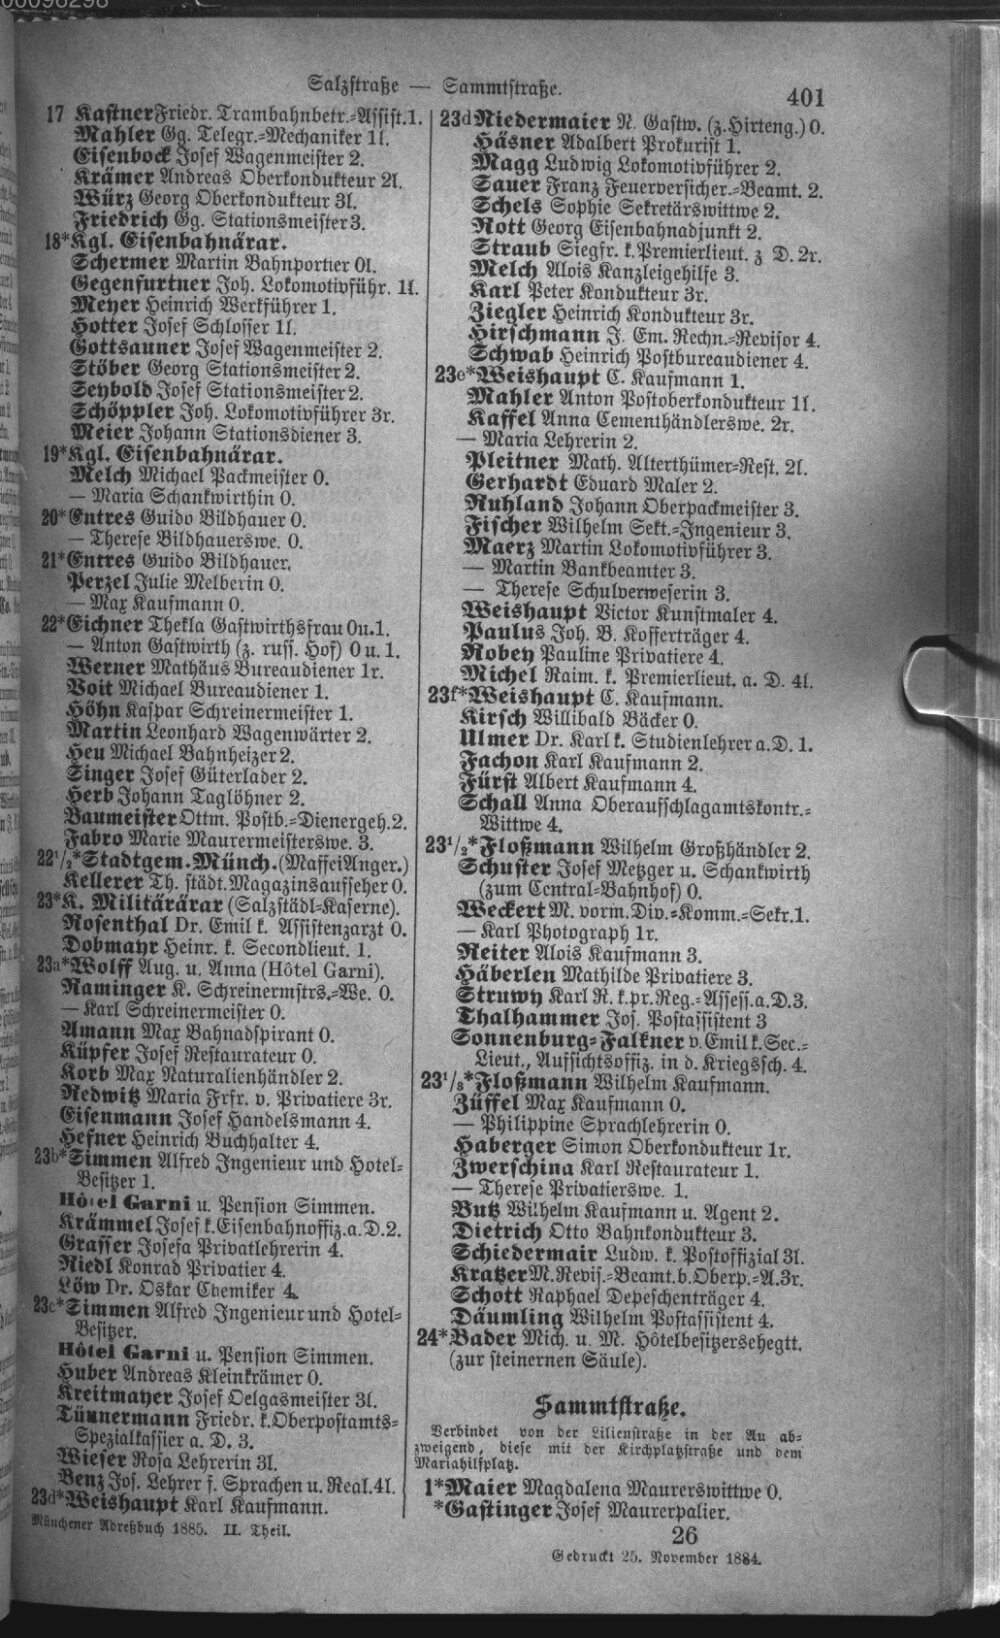 00096298
Salzstraße — Sammtstraße.
401
17 Kastner Friedr. Trambahnbetr.=Assist. 1.
Mahler Gg. Telegr.=Mechaniker 1l.
Eisenbock Josef Wagenmeister 2.
Krämer Andreas Oberkondukteur 2l.
Würz Georg Oberkondukteur 3l.
Friedrich Gg. Stationsmeister 3.
18*Kgl. Eisenbahnärar.
Schermer Martin Bahnportier 0l.
Gegenfurtner Joh. Lokomotivführ. 1l.
Meyer Heinrich Werkführer 1.
Hotter Josef Schlosser 1l.
Gottsauner Josef Wagenmeister 2.
Stöber Georg Stationsmeister 2.
Seybold Josef Stationsmeister 2.
Schöppler Joh. Lokomotivführer 3r.
Meier Johann Stationsdiener 3.
19*Kgl. Eisenbahnärar.
Melch Michael Packmeister 0.
— Maria Schankwirthin 0.
20*Entres Guido Bildhauer 0.
— Therese Bildhauerswe. 0.
21*Entres Guido Bildhauer.
Perzel Julie Melberin 0.
— Max Kaufmann 0.
22*Eichner Thekla Gastwirthsfrau 0 u. 1.
— Anton Gastwirth (z. russ. Hof) 0 u. 1.
Werner Mathäus Bureaudiener 1r.
Voit Michael Bureaudiener 1.
Höhn Kaspar Schreinermeister 1.
Martin Leonhard Wagenwärter 2.
Heu Michael Bahnheizer 2.
Singer Josef Güterlader 2.
Herb Johann Taglöhner 2.
Baumeister Ottm. Postb.=Dienergeh. 2.
Fabro Marie Maurermeisterswe. 3.
22½*Stadtgem. Münch. (Maffei Anger.)
Kellerer Th. städt. Magazinsaufseher 0.
23*K. Militärärar (Salzstädl=Kaserne).
Rosenthal Dr. Emil k. Assistenzarzt 0.
Dobmayr Heinr. k. Secondlieut. 1.
23a*Wolff Aug. u. Anna (Hôtel Garni).
Raminger K. Schreinermstrs.=We. 0.
— Karl Schreinermeister 0.
Amann Max Bahnadspirant 0.
Küpfer Josef Restaurateur 0.
Korb Max Naturalienhändler 2.
Redwitz Maria Frfr. v. Privatiere 3r.
Eisenmann Josef Handelsmann 4.
Hefner Heinrich Buchhalter 4.
23b*Simmen Alfred Ingenieur und Hotel=
Besitzer 1.
Hôtel Garni u. Pension Simmen.
Krämmel Josef k. Eisenbahnoffiz. a. D. 2.
Grasser Josefa Privatlehrerin 4.
Riedl Konrad Privatier 4.
Löw Dr. Oskar Chemiker 4.
23c*Simmen Alfred Ingenieur und Hotel=
Besitzer.
Hôtel Garni u. Pension Simmen.
Huber Andreas Kleinkrämer 0.
Kreitmayer Josef Oelgasmeister 3l.
Tünnermann Friedr. k. Oberpostamts=
Spezialkassier a. D. 3.
Wieser Rosa Lehrerin 3l.
Benz Jos. Lehrer f. Sprachen u. Real. 4l.
23d*Weishaupt Karl Kaufmann.
Münchener Adreßbuch 1885. II. Theil.
23d Niedermaier N. Gastw. (z. Hirteng.) 0.
Häsner Adalbert Prokurist 1.
Magg Ludwig Lokomotivführer 2.
Sauer Franz Feuerversicher.=Beamt. 2.
Schels Sophie Sekretärswittwe 2.
Rott Georg Eisenbahnadjunkt 2.
Straub Siegfr. k. Premierlieut. z D. 2r.
Melch Alois Kanzleigehilfe 3.
Karl Peter Kondukteur 3r.
Ziegler Heinrich Kondukteur 3r.
Hirschmann J. Em. Rechn.=Revisor 4.
Schwab Heinrich Postbureaudiener 4.
23e*Weishaupt C. Kaufmann 1.
Mahler Anton Postoberkondukteur 1l.
Kaffel Anna Cementhändlerswe. 2r.
— Maria Lehrerin 2.
Pleitner Math. Alterthümer=Rest. 2l.
Gerhardt Eduard Maler 2.
Ruhland Johann Oberpackmeister 3.
Fischer Wilhelm Sekt.=Ingenieur 3.
Maerz Martin Lokomotivführer 3.
— Martin Bankbeamter 3.
— Therese Schulverweserin 3.
Weishaupt Victor Kunstmaler 4.
Paulus Joh. B. Kofferträger 4.
Robey Pauline Privatiere 4.
Michel Raim. k. Premierlieut. a. D. 4l.
23f*Weishaupt C. Kaufmann.
Kirsch Willibald Bäcker 0.
Ulmer Dr. Karl k. Studienlehrer a. D. 1.
Fachon Karl Kaufmann 2.
Fürst Albert Kaufmann 4.
Schall Anna Oberaufschlagamtskontr.=
Wittwe 4.
23½*Floßmann Wilhelm Großhändler 2.
Schuster Josef Metzger u. Schankwirth
(zum Central=Bahnhof) 0.
Weckert M. vorm. Div.=Komm.=Sekr. 1.
— Karl Photograph 1r.
Reiter Alois Kaufmann 3.
Häberlen Mathilde Privatiere 3.
Struwy Karl R. k. pr. Reg.=Assess. a. D. 3.
Thalhammer Jos. Postassistent 3
Sonnenburg=Falkner v. Emil k. Sec.=
Lieut., Aufsichtsoffiz. in d. Kriegssch. 4.
23⅓*Floßmann Wilhelm Kaufmann.
Züffel Max Kaufmann 0.
— Philippine Sprachlehrerin 0.
Haberger Simon Oberkondukteur 1r.
Zwerschina Karl Restaurateur 1.
— Therese Privatierswe. 1.
Butz Wilhelm Kaufmann u. Agent 2.
Dietrich Otto Bahnkondukteur 3.
Schiedermair Ludw. k. Postoffizial 3l.
Kratzer M. Revis.=Beamt. b. Oberp.=A. 3r.
Schott Raphael Depeschenträger 4.
Däumling Wilhelm Postassistent 4.
24*Bader Mich. u. M. Hôtelbesitzersehegtt.
(zur steinernen Säule).
Sammtstraße.
Verbindet von der Lilienstraße in der Au ab=
zweigend, diese mit der Kirchplatzstraße und dem
Mariahilfplatz.
1*Maier Magdalena Maurerswittwe 0.
*Gastinger Josef Maurerpalier.
26
Gedruckt 25. November 1884.